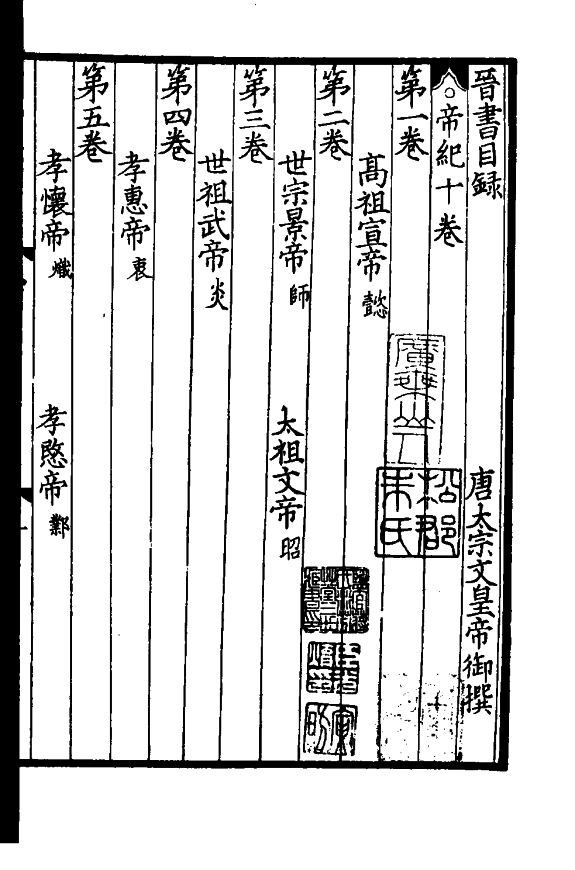 晉書目録
唐太宗文皇帝御撰
帝紀十卷
第一卷
髙祖宣帝 懿
第二卷
世宗景帝 師
太祖文帝 昭
第三卷
世祖武帝 炎
第四卷
孝惠帝 衷
第五卷
孝懷帝 熾
孝愍帝 鄴
松郡
朱氏